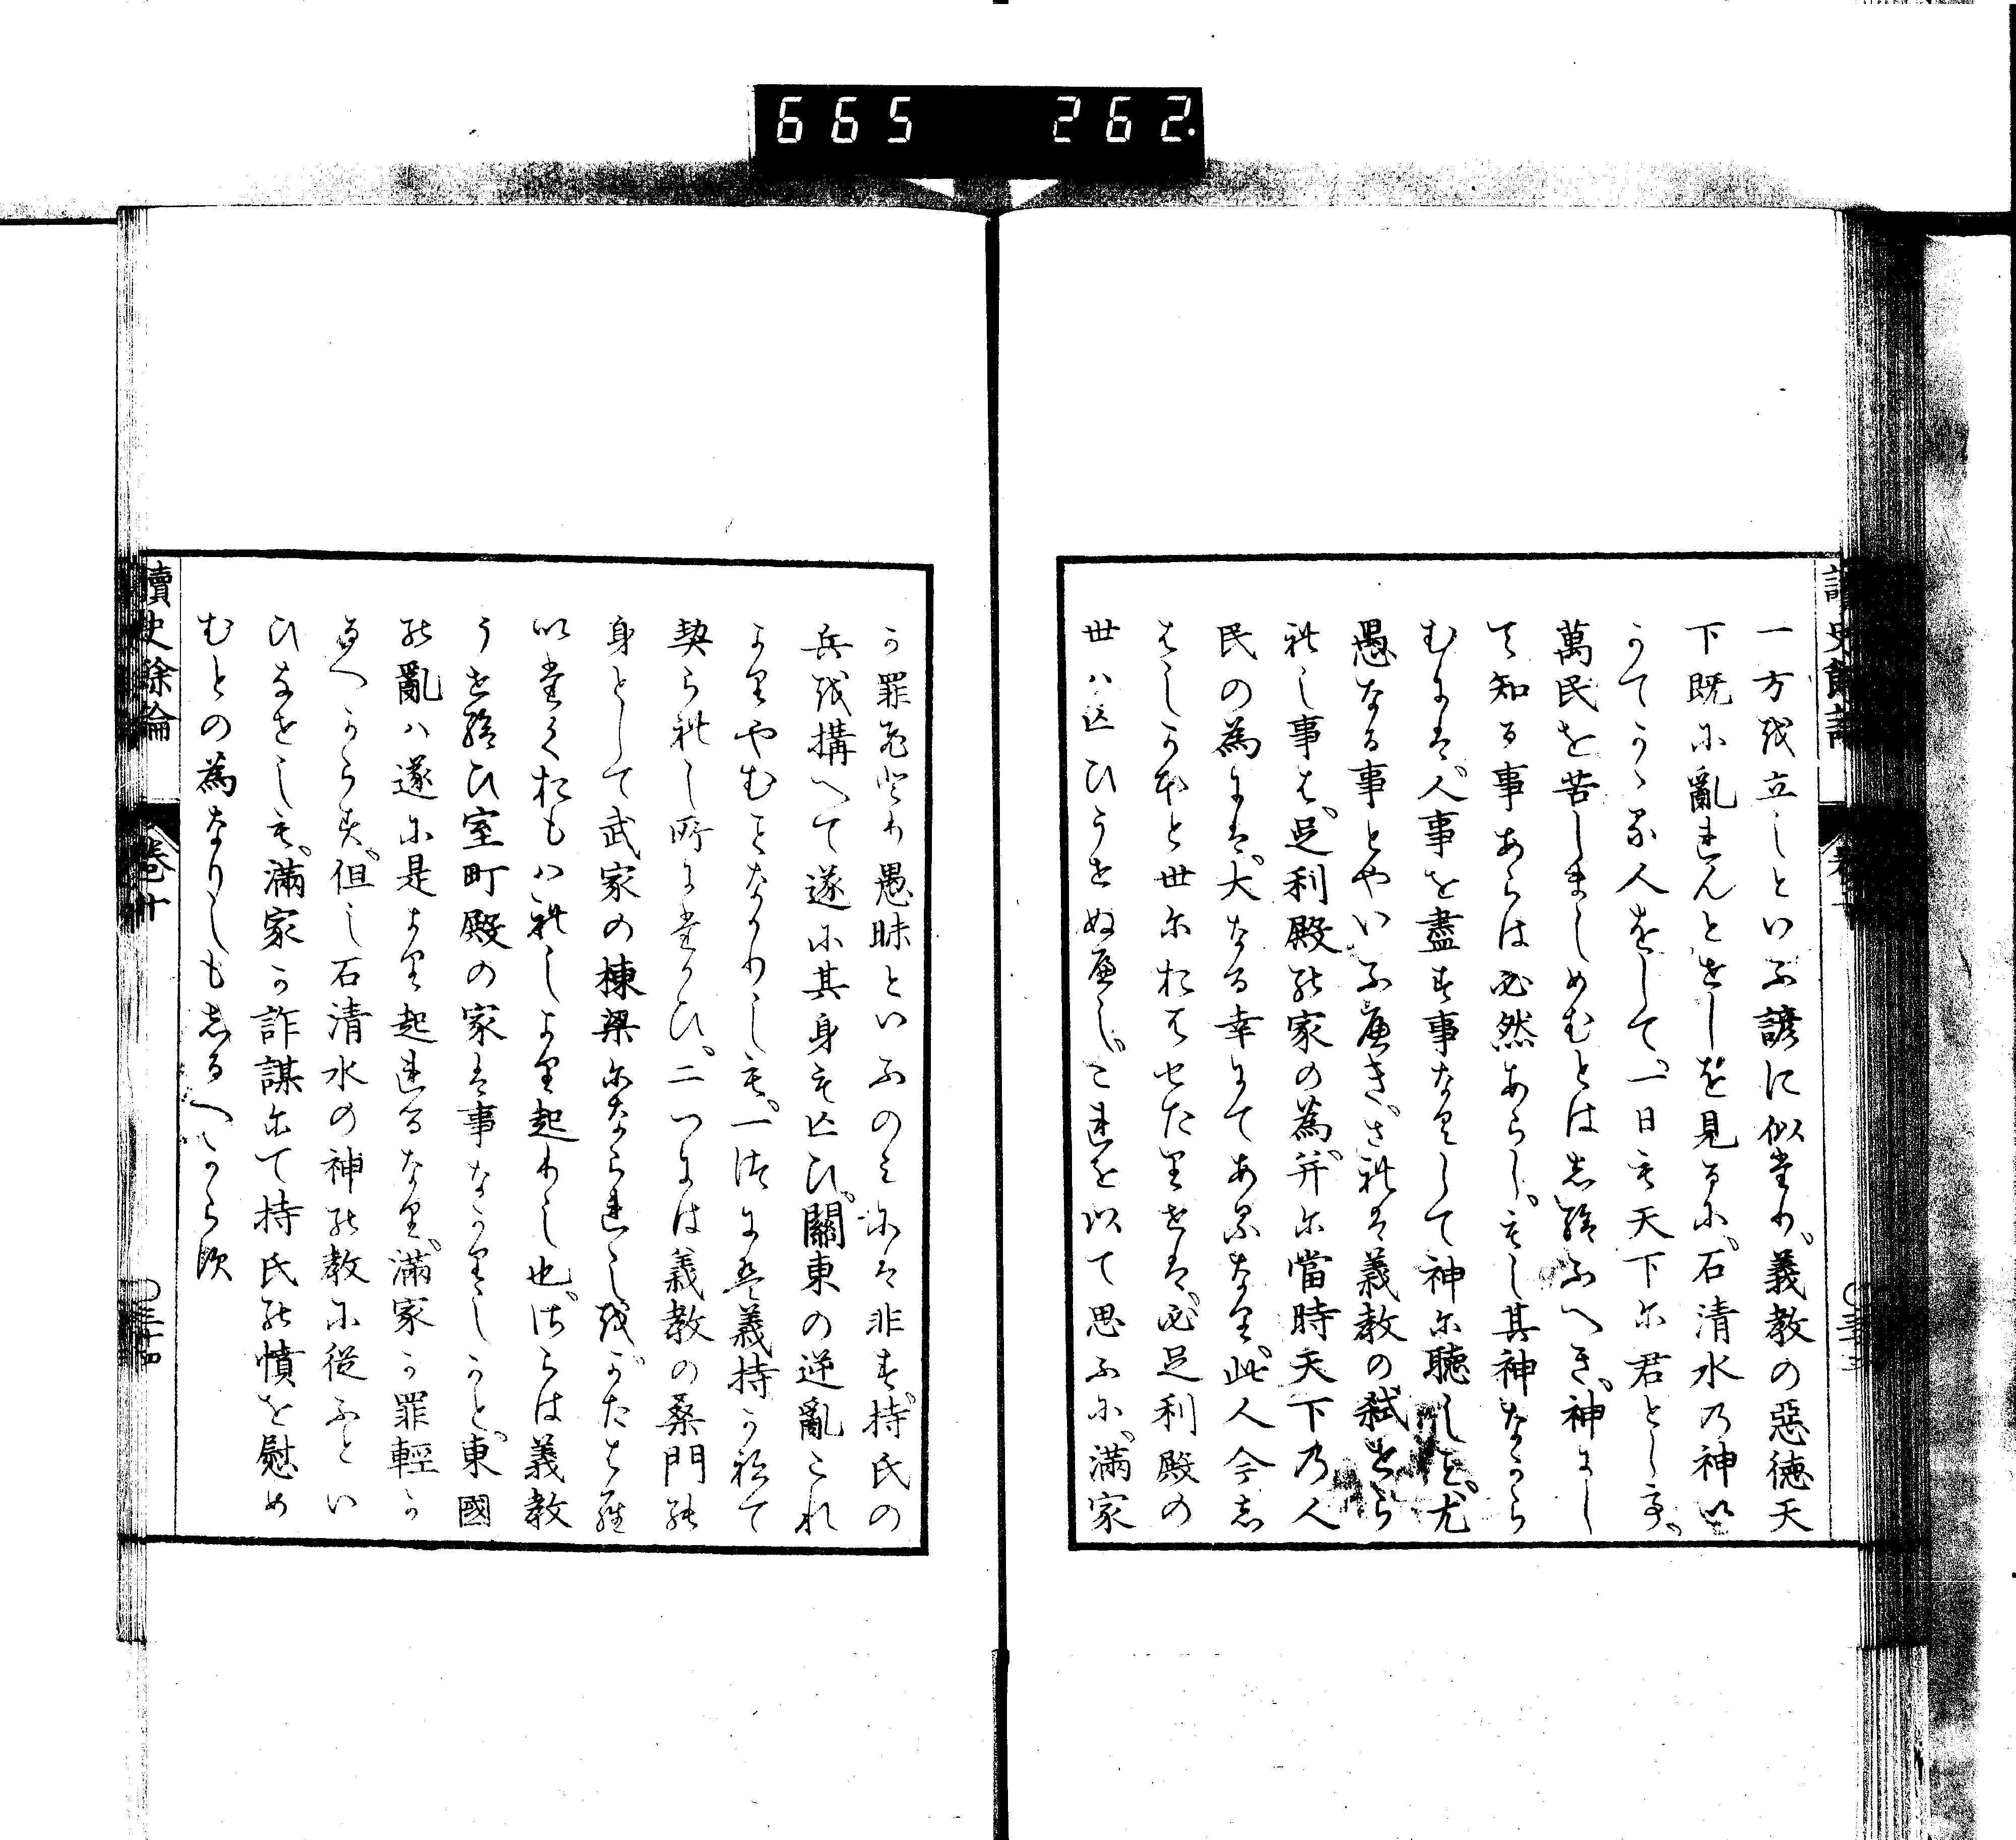 665 262.
讀史餘論
卷十
一方を立しといふ諺に似たり。義教の惡徳天
下既に亂れんとせしを見るに。石清水の神い
かてかゝる人をして。一日も天下に君とし。
萬民を苦しましめむとは志給ふへき。神にし
て知る事あらは必然あらし。もし其神なから
むには。人事を盡す事なくして神に聽しを。尤
愚なる事とやいふへき。されは義教の弑せら
れし事は。足利殿の家の爲。并に當時天下の人
民の為には。大なる幸にてあるなり。此人今志
はしかほと世におはせたりせは。必足利殿の
世ハ亡ひうせぬへし。これを以て思ふに。滿家
か罪たゝ愚昧といふのみには非す。持氏の
兵を構へて遂に其身も亡ひ。關東の逆亂これ
よりやむことなかりしも。一つには義持かねて
契られし所にたかひ。二つには義教の桑門の
身として武家の棟梁になられしを。かたはら
いたくおもハれしより起りし也。さらは義教
うせ給ひ室町殿の家は事なかりしかと。東國
の亂ハ遂に是より起れるなり。滿家か罪輕か
るへからす。但し石清水の神の教に従ふとい
ひなせしも。滿家か詐謀にて持氏の憤を慰め
むとの為なりしも志るへからす
讀史餘論
卷十
三十四